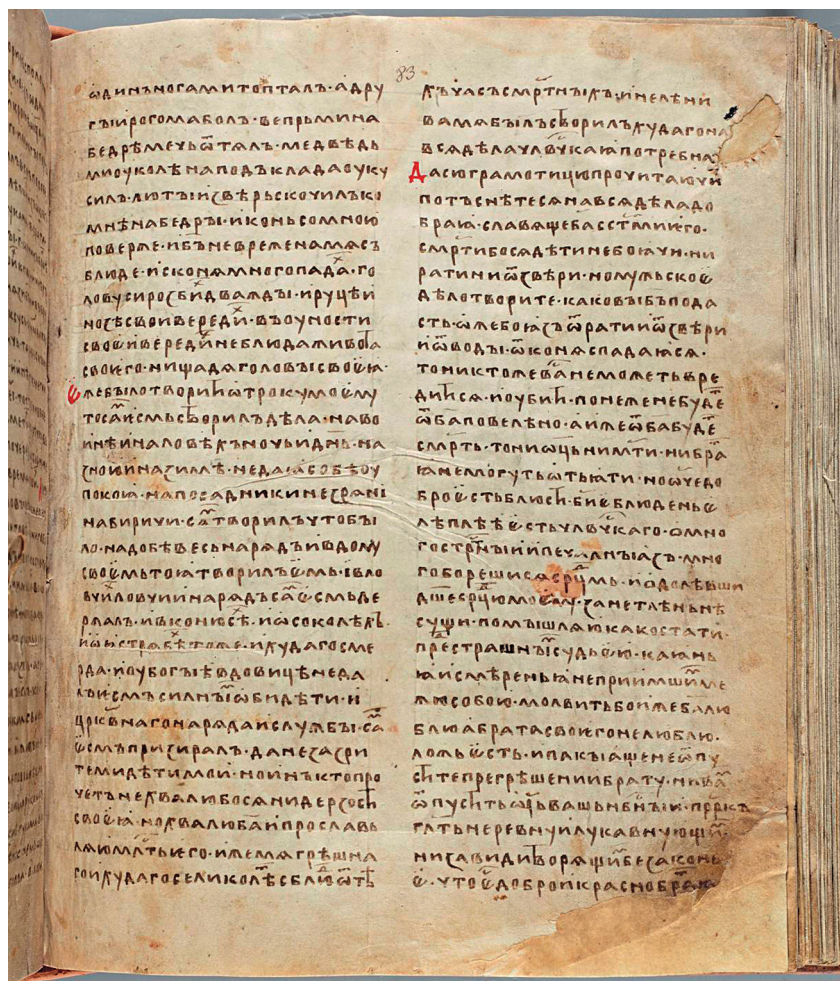 83
ѡдинъ ногами топталъ · а дру
гъıи рогома болъ · вепрь ми на
бедрѣ мечь ѿтялъ · медвѣдь
ми ѹ колѣна подъклада ѹку
силъ · лютъıи звѣрь скочилъ ко
мнѣ на бедръı · и конь со мною
поверже · и бъ҃ неврежена мя съ
блюде · и с коня много пада · го
лову си розбих дваждъı · и руцѣ и
нозѣ свои вередих · въ оуности
своєи вередих не блюда живота
своѥго · ни щадя головъı своєꙗ ·
єже бъıло творити ѡтроку моєму
то сам есмь створилъ дѣла · на во
инѣ и на ловѣхъ ночь и днь · на
зною и на зимѣ · не дая собѣ оу
покоꙗ · на посадники не зря ни
на биричи · сам творилъ что бъı
ло надобѣ весь нарядъ и в дому
своємь то ꙗ творилъ єсмь · і в ло
вчих ловчии нарядъ сам єсмь де
ржалъ · и в конюсѣх · и ѡ соколѣхъ ·
и ѡ ястрябѣх тоже · и худаго сме
рда · и оубогъıѣ вдовицѣ не да
лъ есмъ силнъıм ѡбидѣти · и
црквнаго наряда и службъı · сам
єсмъ призиралъ · да не зазри
те ми дѣти мои · но инъ кто про
четъ не хвалю бо ся ни дерзости
своєꙗ · но хвалю ба҃ и прославь
ляю млть ѥго · иже мя грѣшна
го и худаго селико лѣт сблюд ѿ тѣ
хъ час смртнъıхъ · и не лѣни
ва мя бъıлъ створилъ худаго на
вся дѣла члвчкаꙗ потребна ·
Да сю грамотицю прочитаючи
потъснѣтеся на вся дѣла до
браꙗ · славяще ба҃ с стми ѥго ·
смрти бо ся дѣти не боꙗчи · ни
рати ни ѿ звѣри · но мужьскоє
дѣло творите · како въı бъ҃ пода
сть · ѡже бо ꙗзъ ѿ рати и ѿ звѣри
и ѿ водъı · ѿ коня спадаюся ·
то никтоже вас не можеть вре
дитися · и оубити · понеже не будет
ѿ ба҃ повелѣно · а иже ѿ ба҃ будет
смрть · то ни ѡць ни мти · ни бра
ꙗ не могуть ѿтъꙗти · но ѡче до
бро єсть блюсти · биє блюденьє
лѣплѣѣ єсть члвчкаго · ѡ мно
гострстнъıи и печалнъıи азъ · мно
го борешися срдцмь · и одолѣвши
дше срдцю моєму · зане тлѣньнѣ
сущи · помъıшляю како стати
пре страшнъıм судьєю · каꙗнь
ꙗ и смѣреньꙗ не приимшим ме
жю собою · молвить бо иже ба҃ лю
блю а брата своѥго не люблю ·
ложь єсть · и пакъı аще не ѿпу
стите прегрѣшении брату · ни вам
ѿпустить ѡць вашь нбнъıи · пррк
глть не ревнуи лукавнующим ·
ни завиди творящим безаконь
є · что є добро и красно но браꙗ